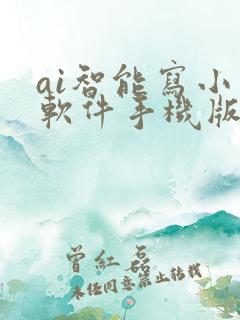 ai智能寫小
軟件手機版
曾紅磊
未经同意禁止转载